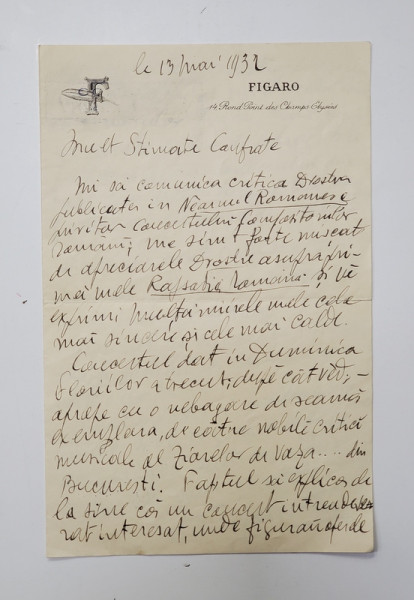 le 13 mai 1932
F
FIGARO
14 Rond Point des Champs Elysées
Mult Stimate Confrate
Mi sa comunica critica Dvostra
publicata in Neamul Romanesc
privitor concertului Compositorilor
romani; me simt forte miscat
de apreciarele Dvostre asupra pri-
mei mele Rapsodie Romana și vĕ
exprim multumirele mele cele
mai sincere și cele mai calde.
Concertul dat in Duminica
Floriilor a trecut, dupĕ cât vĕd,
aprope cu o nebagare de seamă
exemplara, de către nobile critici
musicale al Ziarelor de vaza.... din
București. Faptul se explica de
la sine căi un concert intradevĕ-
rat interesat, unde figurau opere de